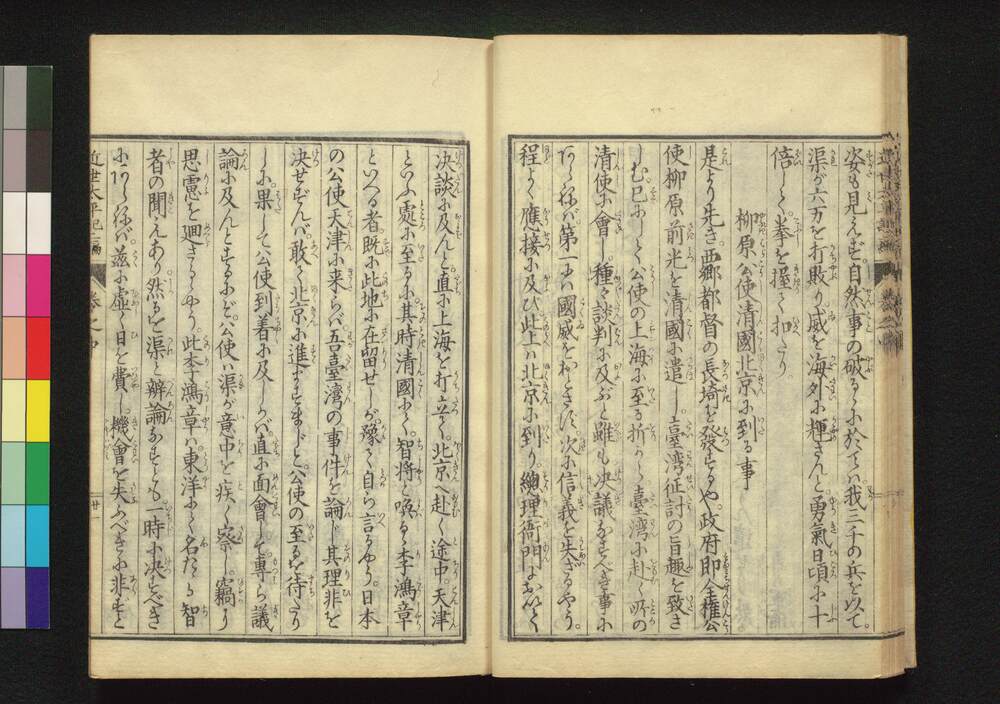 姿も見えず。自然事の破るゝに於ては。我三千の兵を以て。
渠が六万を打敗り威を海外に輝さんと。勇氣日頃に十
倍し。拳を握て扣たり。
柳原公使清國北京に到る事
是より先き。西郷都督の長埼を発するや。政府即全權公
使柳原前光を清國に遣し。臺湾征討の旨趣を致さ
しむ。已にして公使の上海に至る折から。臺湾に赴く所の
清使に會し。種々談判に及ぶと雖も。决議なすべき事に
あらねば。第一には國威をおとさず。次に信義を失ざるやう。
程よく應接に及び。此上は北京に到り。總理衙門において
决談に及んと。直に上海を打立て。北京へ赴く途中。天津
といふ處に至るに。其時清國にて。智將と喚るゝ李鴻章
といへる者。既に此地に在留せしが。豫て自ら言るやう。日本
の公使天津に来らば。吾臺湾の事件を論じ。其理非を
决せずんば。敢て北京に進ますまじと。公使の至るを待たり
しに。果して公使到着に及しかば。直に面會して。専ら議
論に及んとするにぞ。公使は渠が意中を疾く察し。竊に
思慮を廻さるゝやう。此李鴻章は。東洋にて名だゝる智
者の聞えあり。然るを渠と辨論なすとも。一時に决すべき
にあらねば。茲に虚く日を費し。機會を失ふべきに非ずと
近世太平記二編
巻之四
廿一